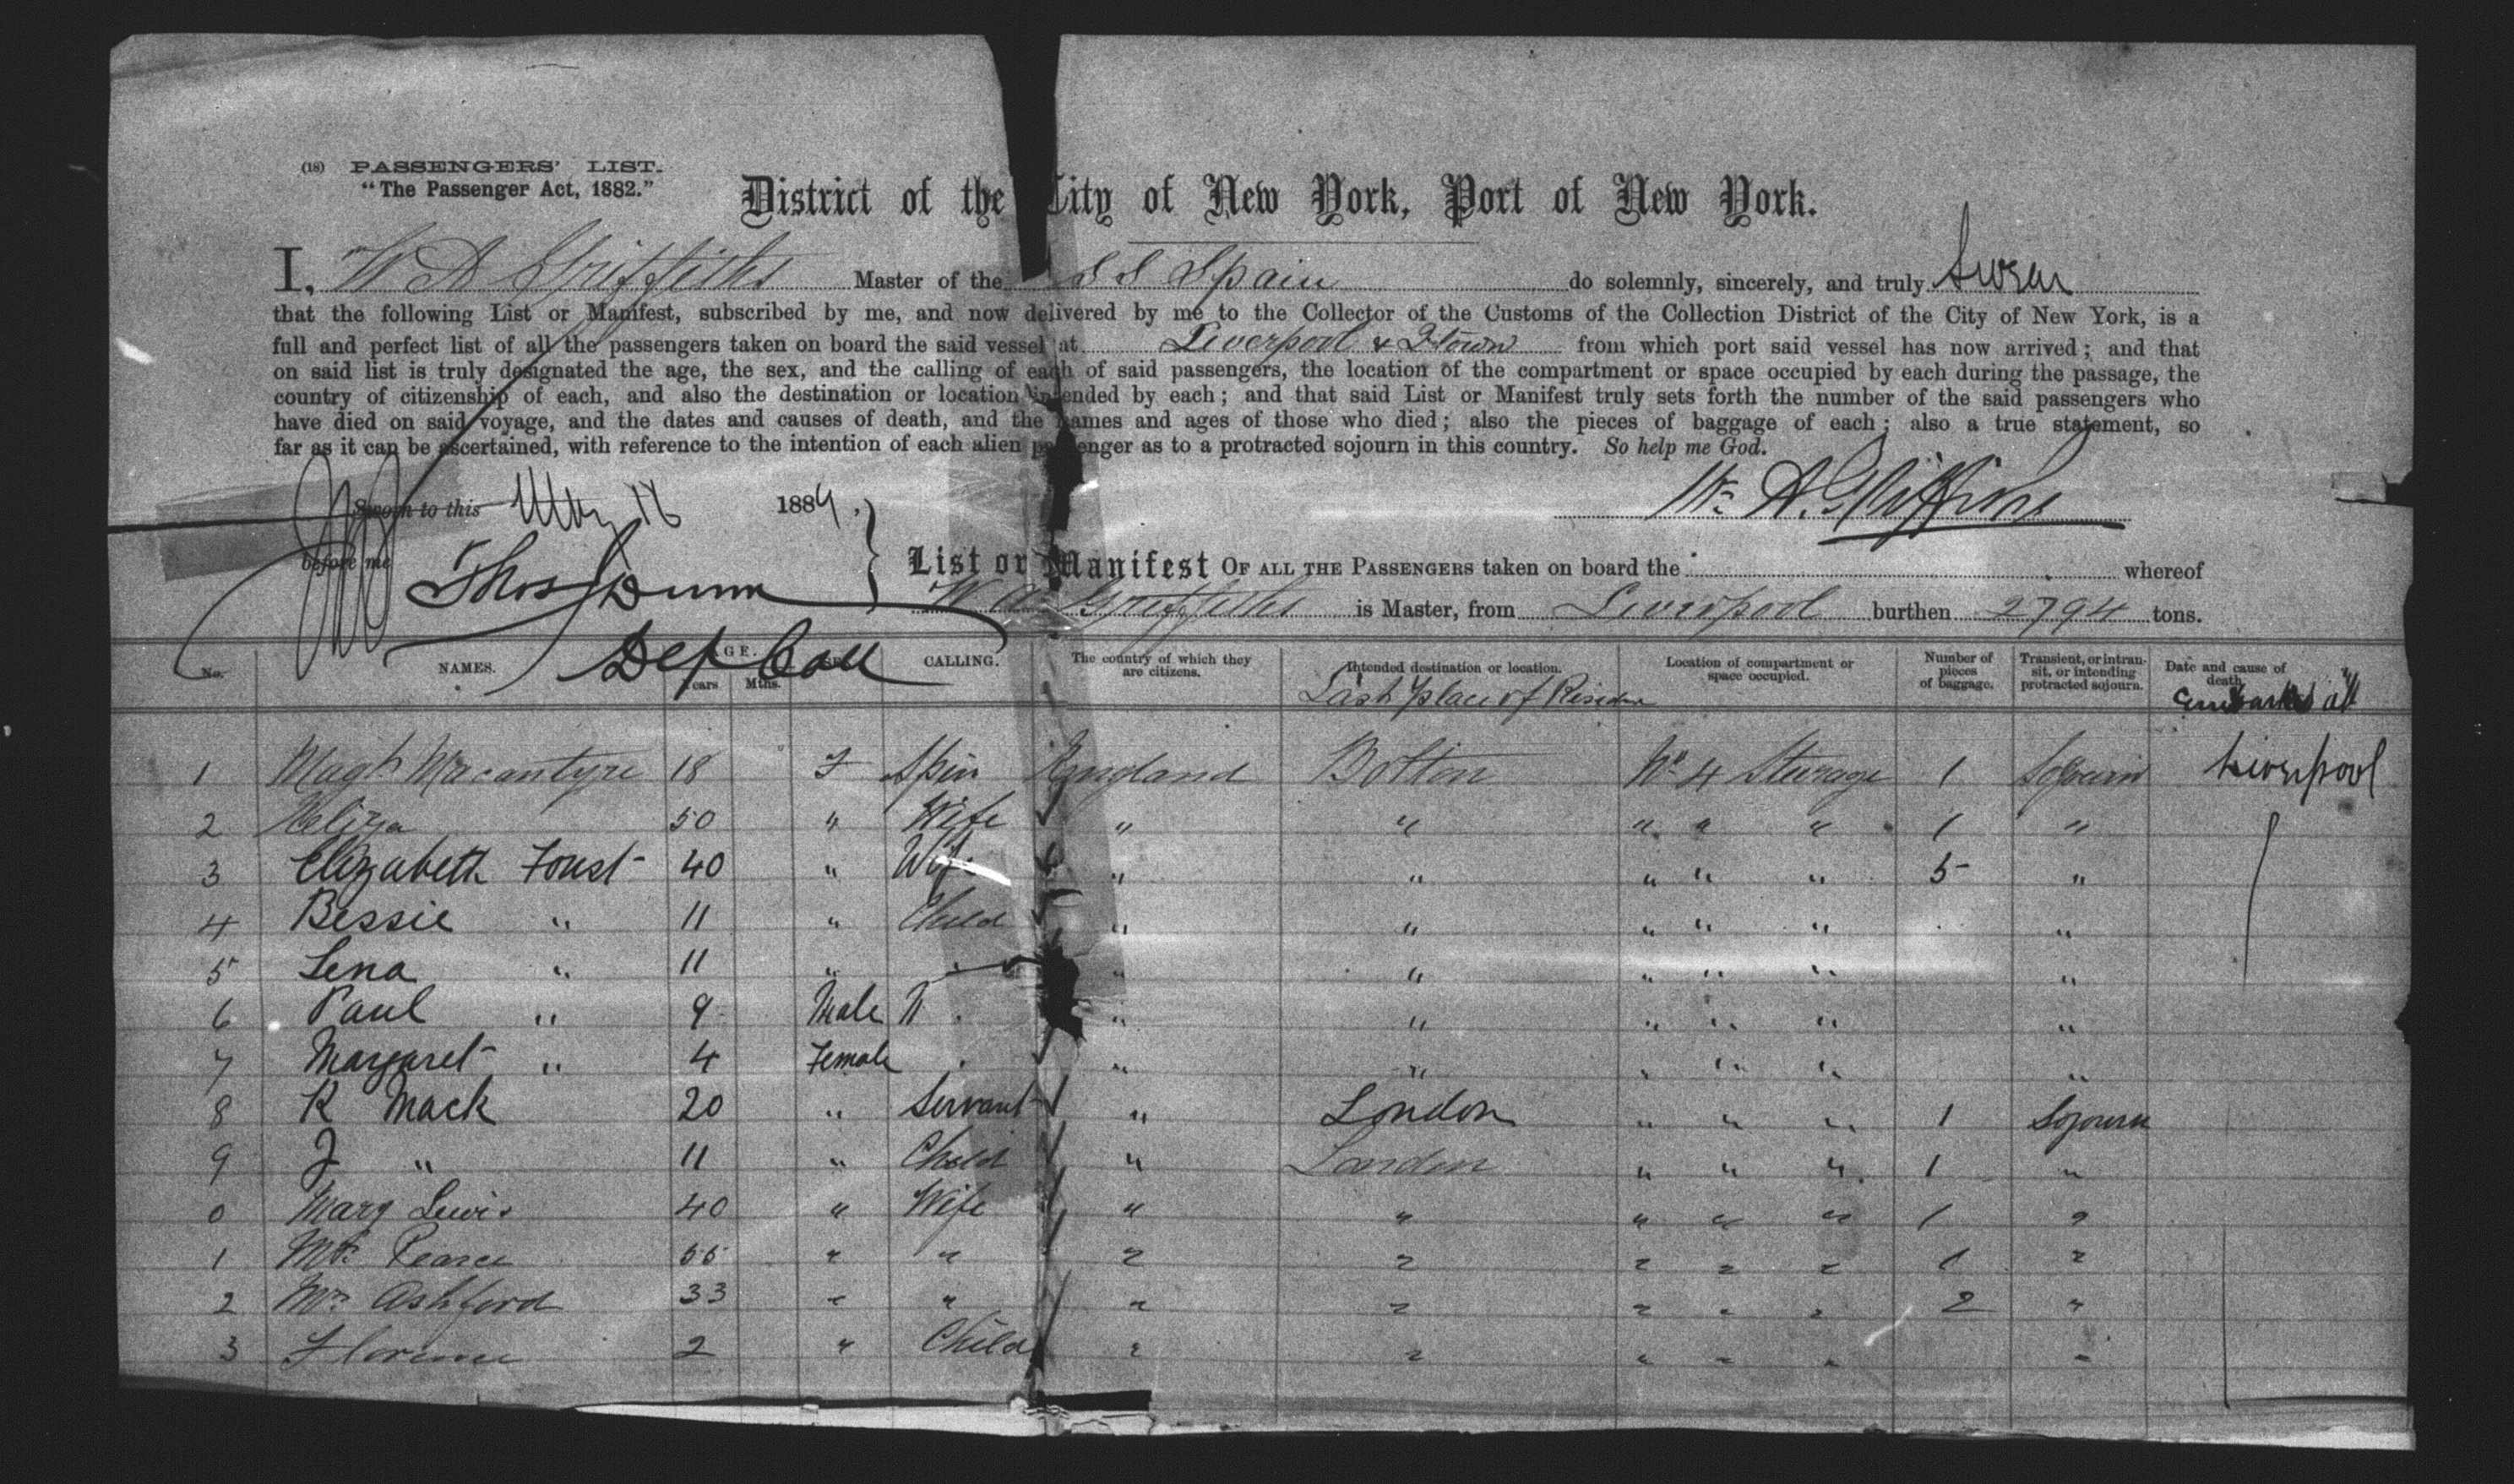 (18) PASSENGERS' LIST.
"The Passenger Act, 1882."
District of the City of New York, Port of New York.
I, W A Griffiths Master of the S S Spain do solemnly, sincerely, and truly Swear
that the following List or Manifest, subscribed by me, and now delivered by me to the Collector of the Customs of the Collection District of the City of New York, is a
full and perfect list of all the passengers taken on board the said vessel at Liverpool & Qtown from which port said vessel has now arrived; and that
on said list is truly designated the age, the sex, and the calling of each of said passengers, the location of the compartment or space occupied by each during the passage, the
country of citizenship of each, and also the destination or location intended by each; and that said List or Manifest truly sets forth the number of the said passengers who
have died on said voyage, and the dates and causes of death, and the names and ages of those who died; also the pieces of baggage of each; also a true statement, so
far as it can be ascertained, with reference to the intention of each alien passenger as to a protracted sojourn in this country. So help me God.
Sworn to this May 1884, W. A. Griffiths
before me Thos Dunn
Dep Coll
List or Manifest OF ALL THE PASSENGERS taken on board the whereof
W A Griffiths is Master, from Liverpool burthen 2794 tons.
No. NAMES. AGE. Years Mths. SEX. CALLING. The country of which they are citizens. Intended destination or location. Last place of Residence Location of compartment or space occupied. Number of pieces of baggage. Transient, or intransit, or intending protracted sojourn. Date and cause of death. Embarked at
1 Magt Macantyre 18 F Spin England Bolton No 4 Steerage 1 Sojourn Liverpool
2 50 " Wife " " " " " 1 "
3 Elizabeth Foust 40 " Wife " " " " " 5 "
4 Bessie " 11 " Child " " " " " "
5 Lena " 11 " " " " " " " "
6 Paul " 9 Male " " " " " "
7 Margaret " 4 Female " " " " " "
8 K Mack 20 " Servant " London " " " 1 Sojourn
9 J " 11 " Child " London " " " 1 "
0 Mary Lewis 40 " Wife " " " " " 1 "
1 Pearce 55 " " " " " " " 1 "
2 Mrs Ashford 33 " " " " " " " 2 "
3 Florence 2 " Child " " " " " "